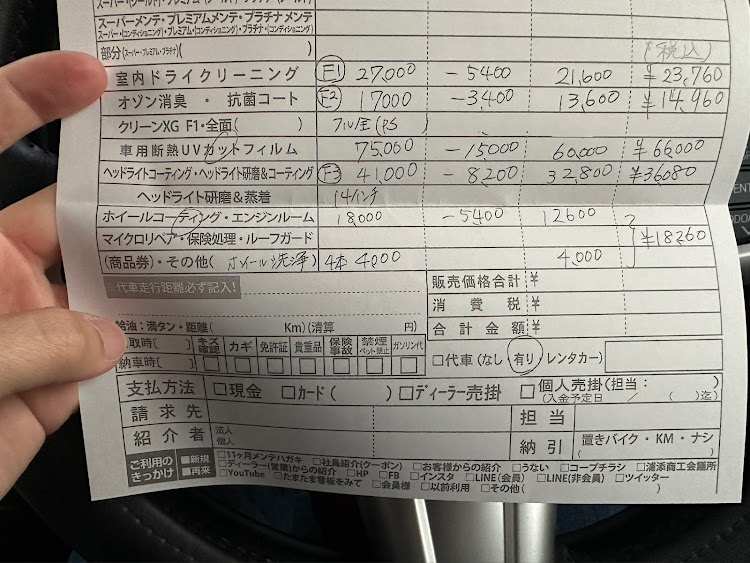 スーパーメンテ・プレミアムメンテ・プラチナメンテ
スーパー・(コンディショニング)・プレミアム・(コンディショニング)・プラチナ・(コンディショニング)
部分(スーパー・プレミアム・プラチナ)( ) (税込)
室内ドライクリーニング F1 27,000 -5400 21,600 ¥23,760
オゾン消臭・抗菌コート F2 17000 -3,400 13,600 ¥14,960
クリーンXG F1・全面( )
車用断熱UVカットフィルム 75,000 -15,000 60,000 ¥66000
ヘッドライトコーティング・ヘッドライト研磨&コーティング F3 41,000 -8,200 32,800 ¥36080
ヘッドライト研磨&蒸着 14インチ
ホイールコーティング・エンジンルーム 18,000 -5400 12600
マイクロリペア・保険処理・ルーフガード ¥18260
(商品券)・その他( ホイール洗浄) 4本 4000 4,000
代車走行距離必ず記入! 販売価格合計 ¥
消費税 ¥
給油:満タン・距離( Km)(清算 円) 合計金額 ¥
取時〔 〕 キズ確認 カギ 免許証 貴重品 保険事故 禁煙ペット禁止 ガソリン代
納車時〔 〕 □ □ □ □ □ □ □ □代車(なし 有り レンタカー)
支払方法 □現金 □カード( ) □ディーラー売掛 □個人売掛(担当: )
(入金予定日 / ( )迄)
請求先 担当
紹介者 法人 個人 納引 置きバイク・KM・ナシ
ご利用のきっかけ ■新規 ■再来
□11ヶ月メンテハガキ □社員紹介(クーポン) □お客様からの紹介 □うない □コープチラシ □浦添商工会議所
□ディーラー(営業)からの紹介 □HP □FB □インスタ □LINE(会員) □LINE(非会員) □ツイッター
□YouTube □たまたま看板をみて □会員様 □以前利用 □その他( )